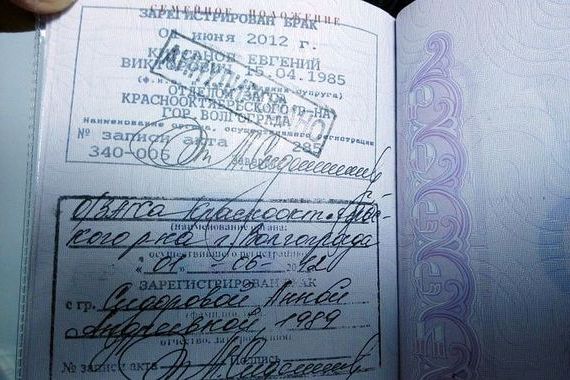 СЕМЕЙНОЕ ПОЛОЖЕНИЕ
ЗАРЕГИСТРИРОВАН БРАК
июня 2012 г.
ЕВГЕНИЙ
15.04.1985
(ф.и. супруга)
ОТДЕЛОМ
КРАСНООКТЯБРЬСКОГО Р-НА
ГОР. ВОЛГОГРАДА
Наименование органа, осуществившего регистрацию
№ записи акта 285
340-006
АННУЛИРОВАНО
О/ЗАГСа Краснооктябрь-
ского р-на г. Волгограда
(наименование органа,
осуществившего регистрацию)
« 01 » - 06 - 2012
ЗАРЕГИСТРИРОВАН БРАК
с гр. Сидоровой Анной
Андреевной, 1989
отчество, дата рождения
№ записи акта Подпись